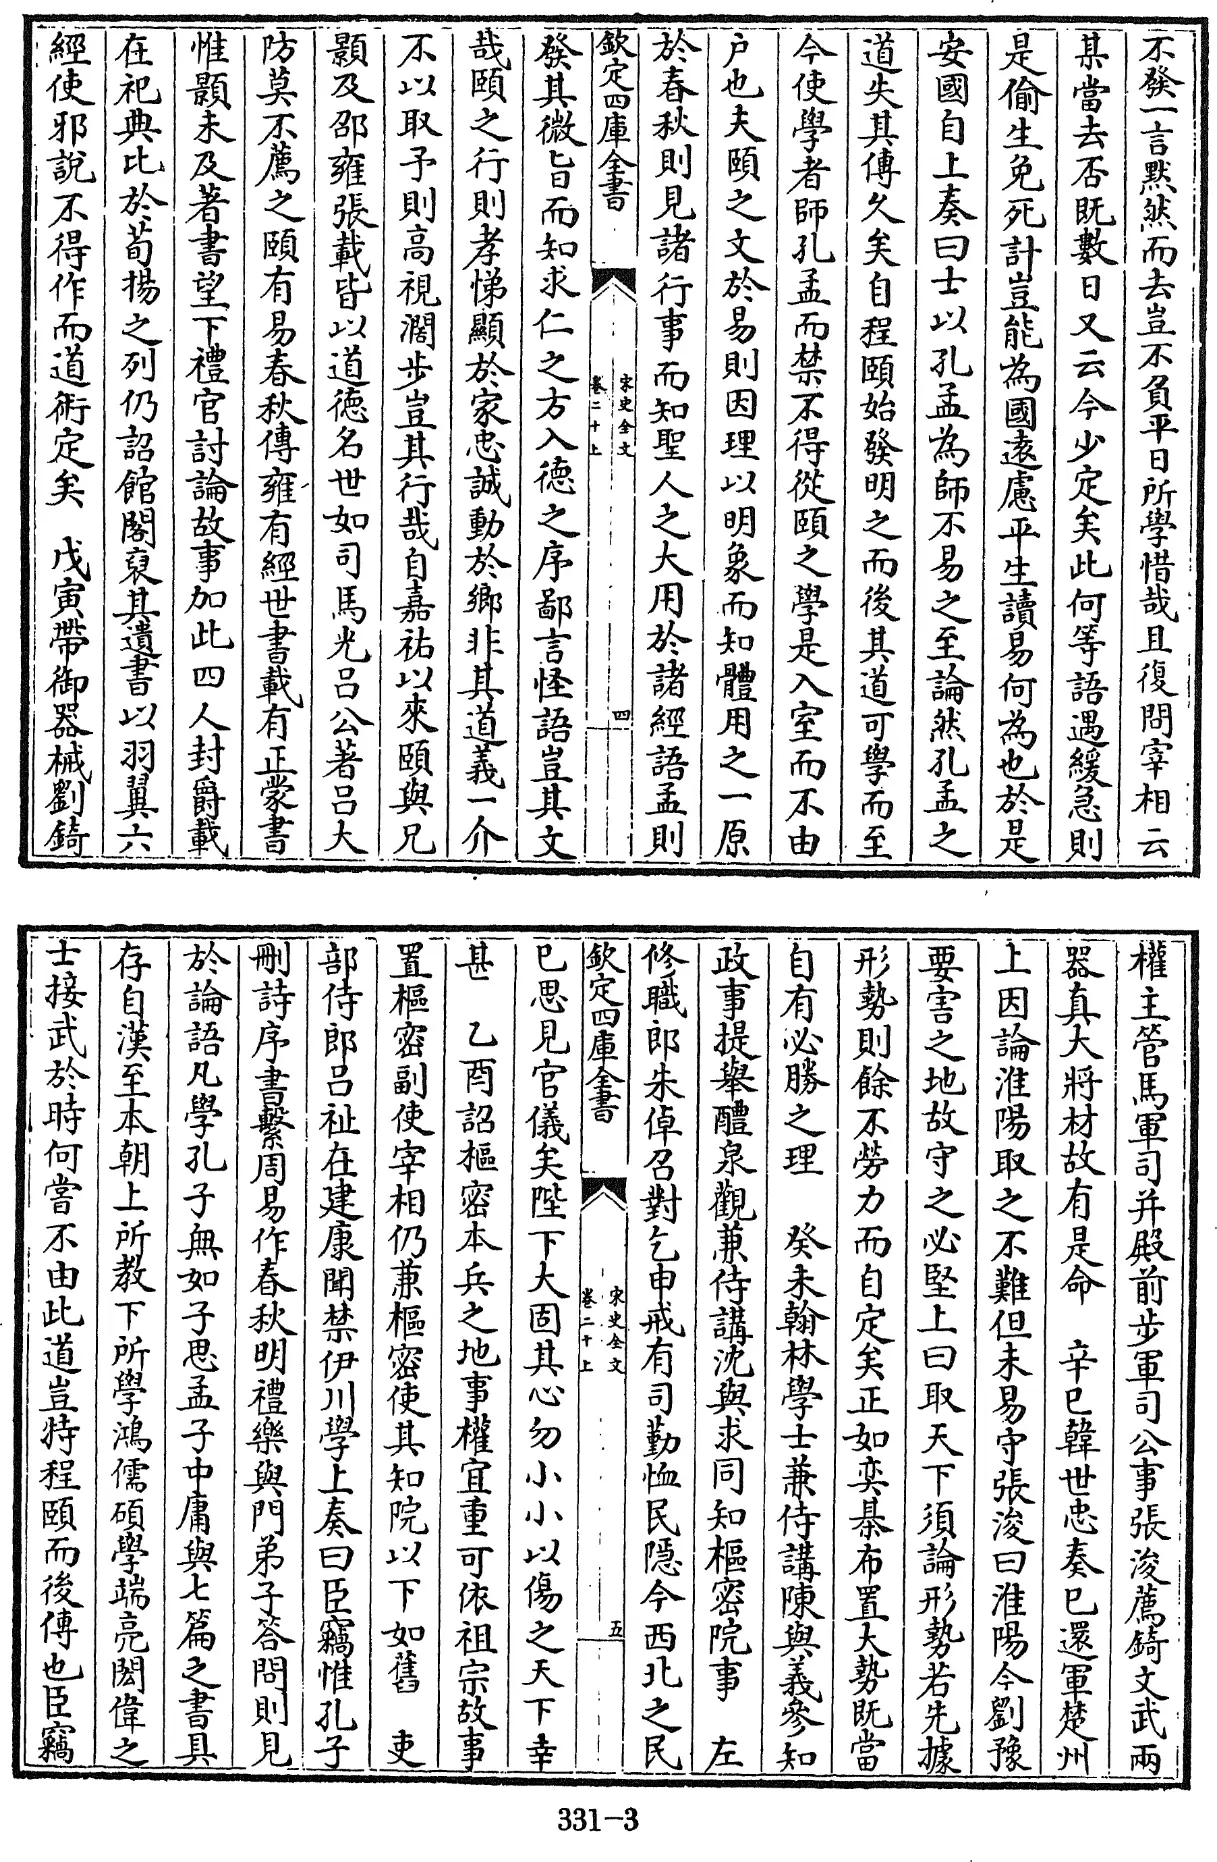 不發一言黙然而去豈不負平日所學惜哉且復問宰相云
某當去否既數日又云今少定矣此何等語遇緩急則
是偷生免死計豈能為國逺慮平生讀易何為也於是
安國自上奏曰士以孔孟為師不易之至論然孔孟之
道失其傳久矣自程頤始發明之而後其道可學而至
今使學者師孔孟而禁不得從頤之學是入室而不由
户也夫頤之文於易則因理以明象而知體用之一原
於春秋則見諸行事而知聖人之大用於諸經語孟則
欽定四庫全書
宋史全文
卷二十上
四
發其微旨而知求仁之方入德之序鄙言怪語豈其文
哉頤之行則孝悌顯於家忠誠動於鄉非其道義一介
不以取予則高視濶步豈其行哉自嘉祐以來頤與兄
顥及邵雍張載皆以道德名世如司馬光吕公著吕大
防莫不薦之頤有易春秋傳雍有經世書載有正蒙書
惟顥未及著書望下禮官討論故事加此四人封爵載
在祀典比於荀揚之列仍詔館閣裒其遺書以羽翼六
經使邪説不得作而道術定矣　戊寅帶御器械劉錡
權主管馬軍司并殿前步軍司公事張浚薦錡文武兩
器真大將材故有是命　辛巳韓世忠奏已還軍楚州
上因論淮陽取之不難但未易守張浚曰淮陽今劉豫
要害之地故守之必堅上曰取天下須論形勢若先據
形勢則餘不勞力而自定矣正如奕棊布置大勢既當
自有必勝之理　癸未翰林學士兼侍講陳與義參知
政事提舉醴泉觀兼侍講沈與求同知樞密院事　左
修職郎朱倬召對乞申戒有司勤恤民隱今西北之民
欽定四庫全書
宋史全文
卷二十上
五
已思見官儀矣陛下大固其心勿小小以傷之天下幸
甚　乙酉詔樞密本兵之地事權宜重可依祖宗故事
置樞密副使宰相仍兼樞密使其知院以下如舊　吏
部侍郎吕祉在建康聞禁伊川學上奏曰臣竊惟孔子
刪詩序書繫周易作春秋明禮樂與門弟子答問則見
於論語凡學孔子無如子思孟子中庸與七篇之書具
存自漢至本朝上所教下所學鴻儒碩學端亮閎偉之
士接武於時何嘗不由此道豈特程頤而後傳也臣竊
331-3